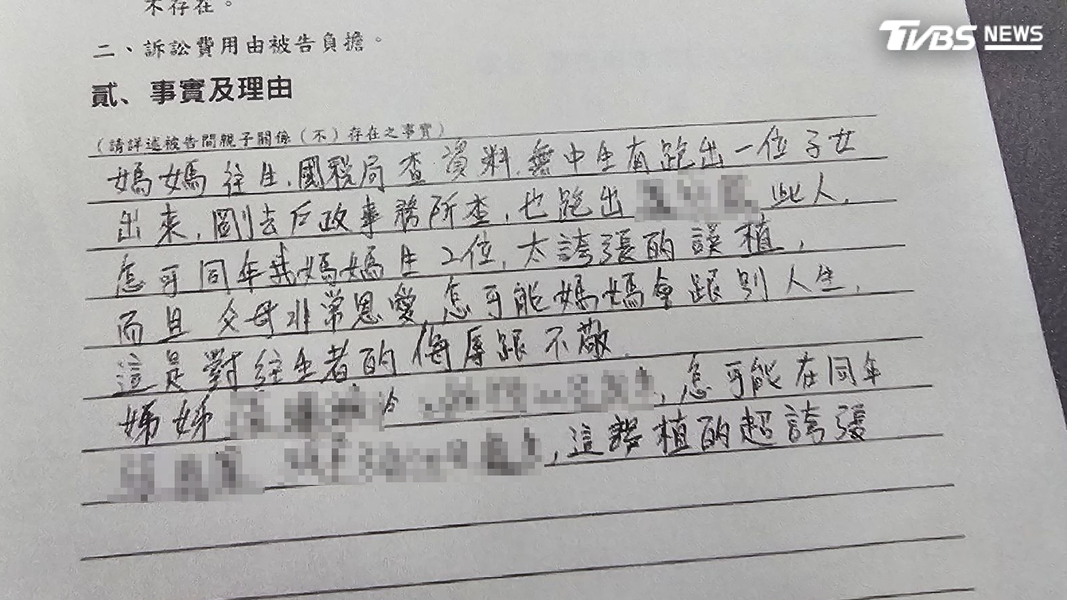 不存在。
TVBS NEWS
二、訴訟費用由被告負擔。
貳、事實及理由
（請詳述被告間親子關係（不）存在之事實）
媽媽往生,國稅局查資料,無中生有跑出一位子女
出來,剛去戶政事務所查,也跑出 此人,
怎可同年我媽媽生2位,太誇張的誤植,
而且父母非常恩愛,怎可能媽媽會跟別人生,
這是對往生者的侮辱跟不敬.
姊姊 ,怎可能在同年
,這誤植的超誇張